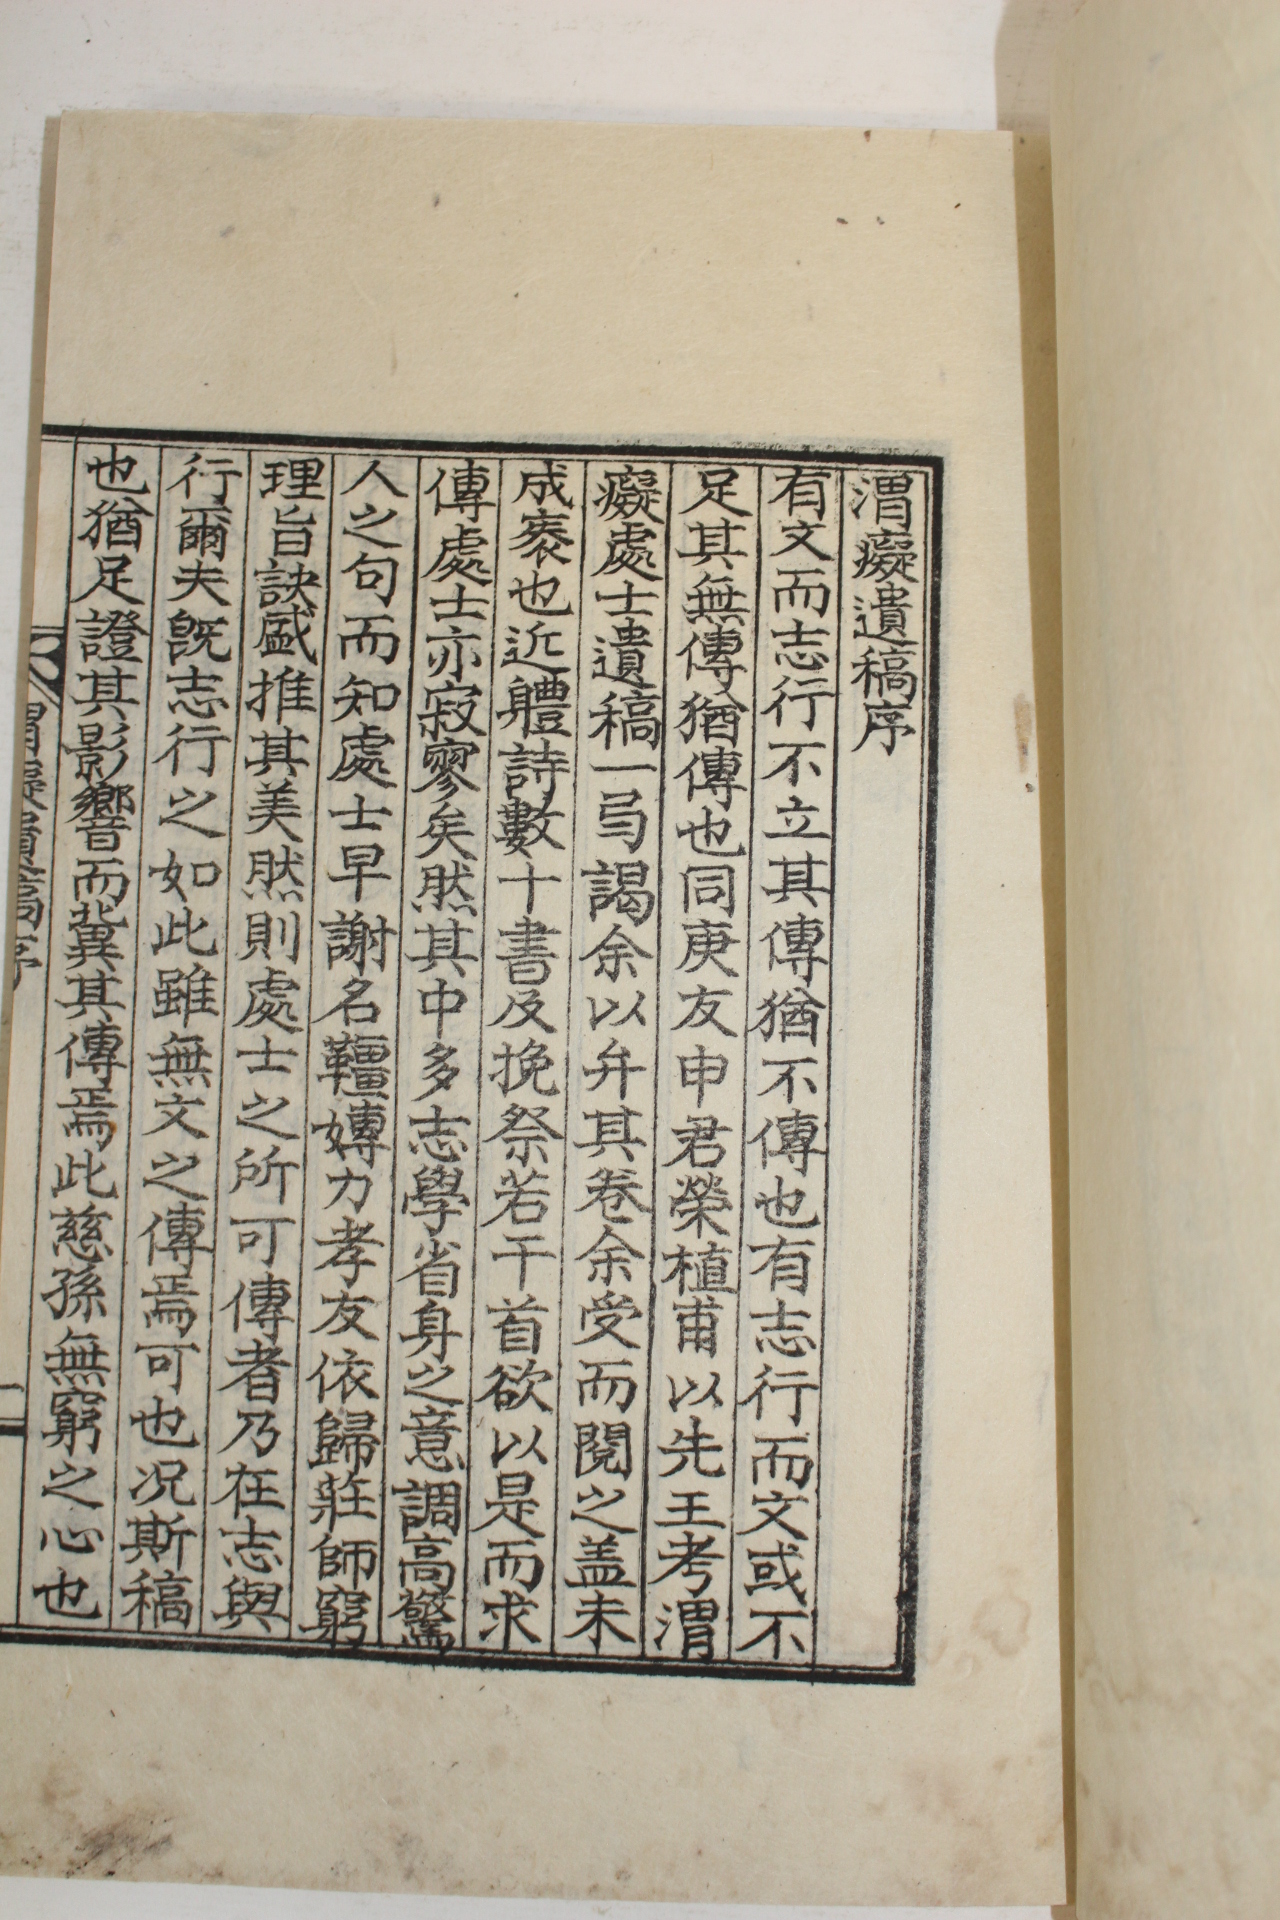 渭癡遺稿序
有文而志行不立其傳猶不傳也有志行而文或不
足其無傳猶傳也同庚友申君榮植甫以先王考渭
癡處士遺稿一弓謁余以弁其卷余受而閱之盖未
成袠也近軆詩數十書及挽祭若干首欲以是而求
傳處士亦寂寥矣然其中多志學省身之意調高驚
人之句而知處士早謝名韁嫥力孝友依歸莊師窮
理旨訣盛推其美然則處士之所可傳者乃在志與
行爾夫旣志行之如此雖無文之傳焉可也况斯稿
也猶足證其影響而冀其傳焉此慈孫無窮之心也
渭癡遺稿序